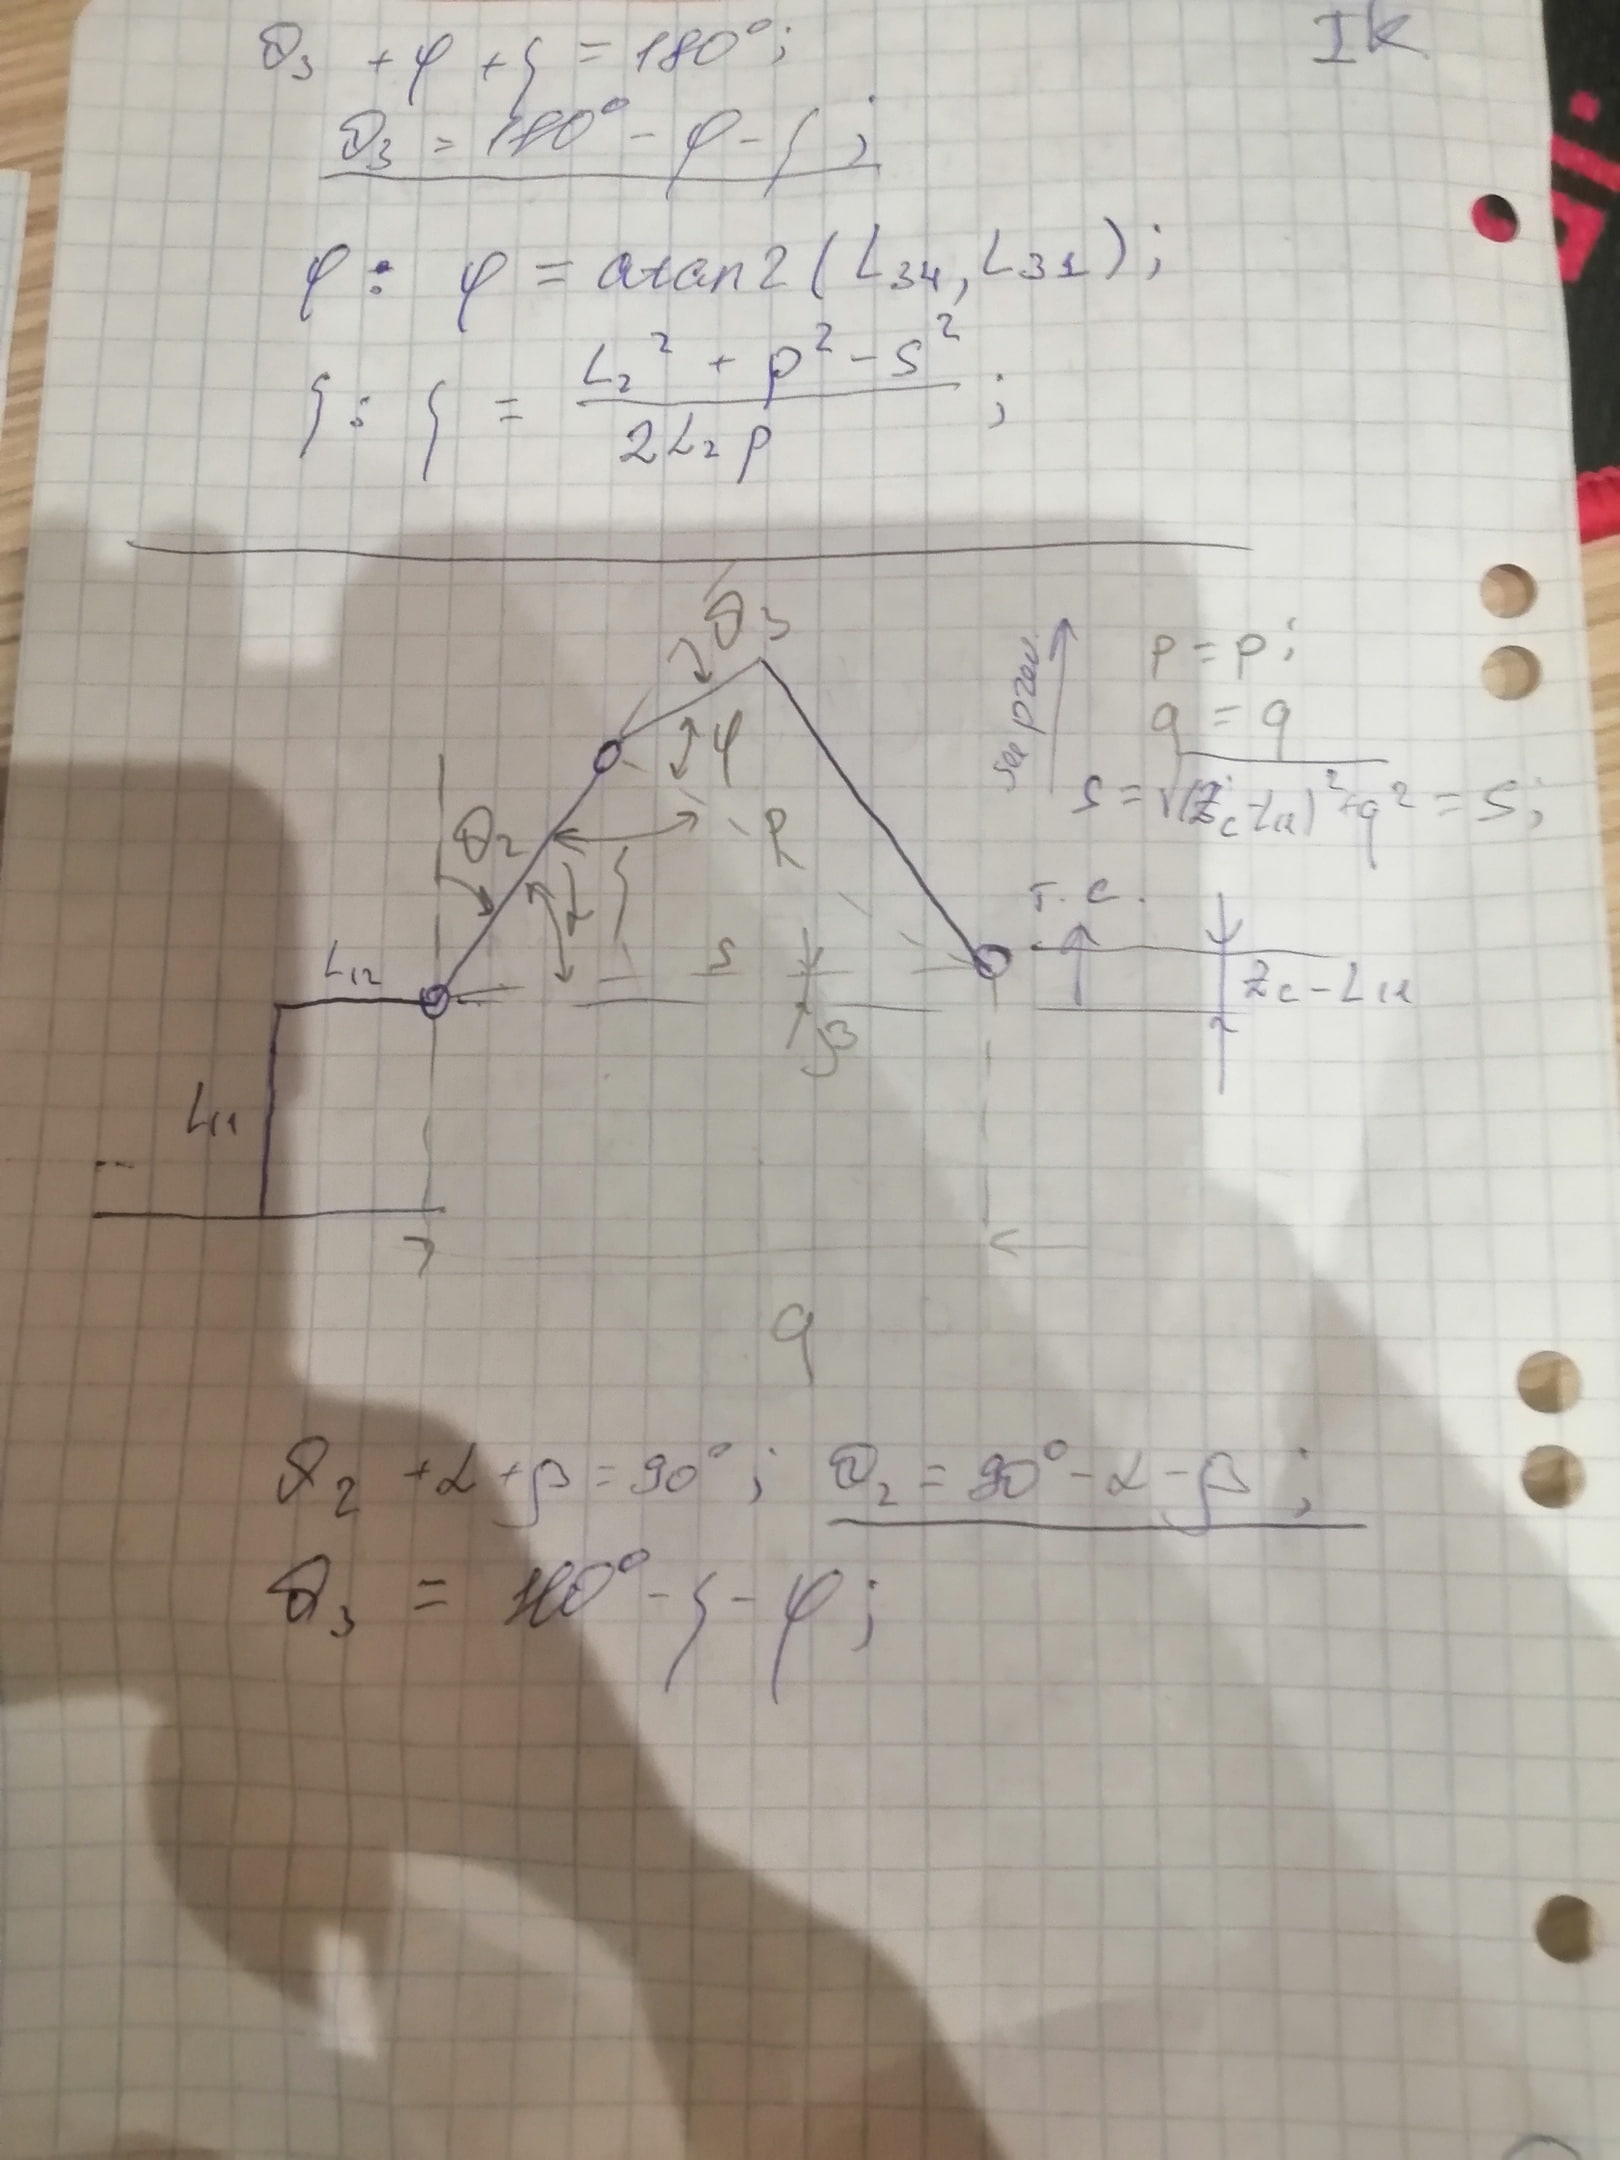 IK
θ₃ + φ + ξ = 180°;
θ₃ = 180° - φ - ξ;
φ: φ = atan2(L₃₄, L₃₁);
ξ: ξ = (L₂² + p² - s²) / (2L₂p);
θ₃
φ
θ₂
α
ξ
p
s
β
L₁₂
L₁₁
see prev.
p = p;
q = q
s = √((Z_c - L₁₁)² + q²) = s;
т. C.
Z_c - L₁₁
q
θ₂ + α + β = 90°; θ₂ = 90° - α - β;
θ₃ = 180° - ξ - φ;